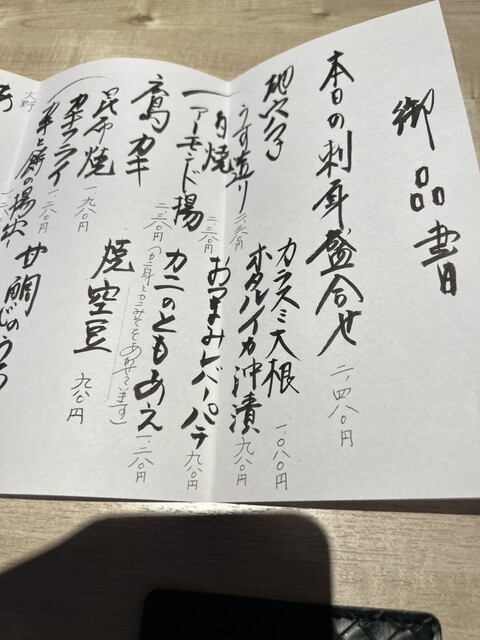 御品書
本日の刺身盛合せ 二、四八〇円
地穴子
うす造り 二、三八〇円
白焼
アーモンド揚 二、三八〇円
カラスミ大根 一、〇八〇円
ホタルイカ沖漬 九八〇円
おつまみレバーパテ 九八〇円
カニのともあえ 一、二八〇円
(カニ身とカニみそをあわせています)
カキ
昆布焼 一、九八〇円
カキフライ
カキと餅の揚出
焼空豆 九八〇円
大野
甘鯛